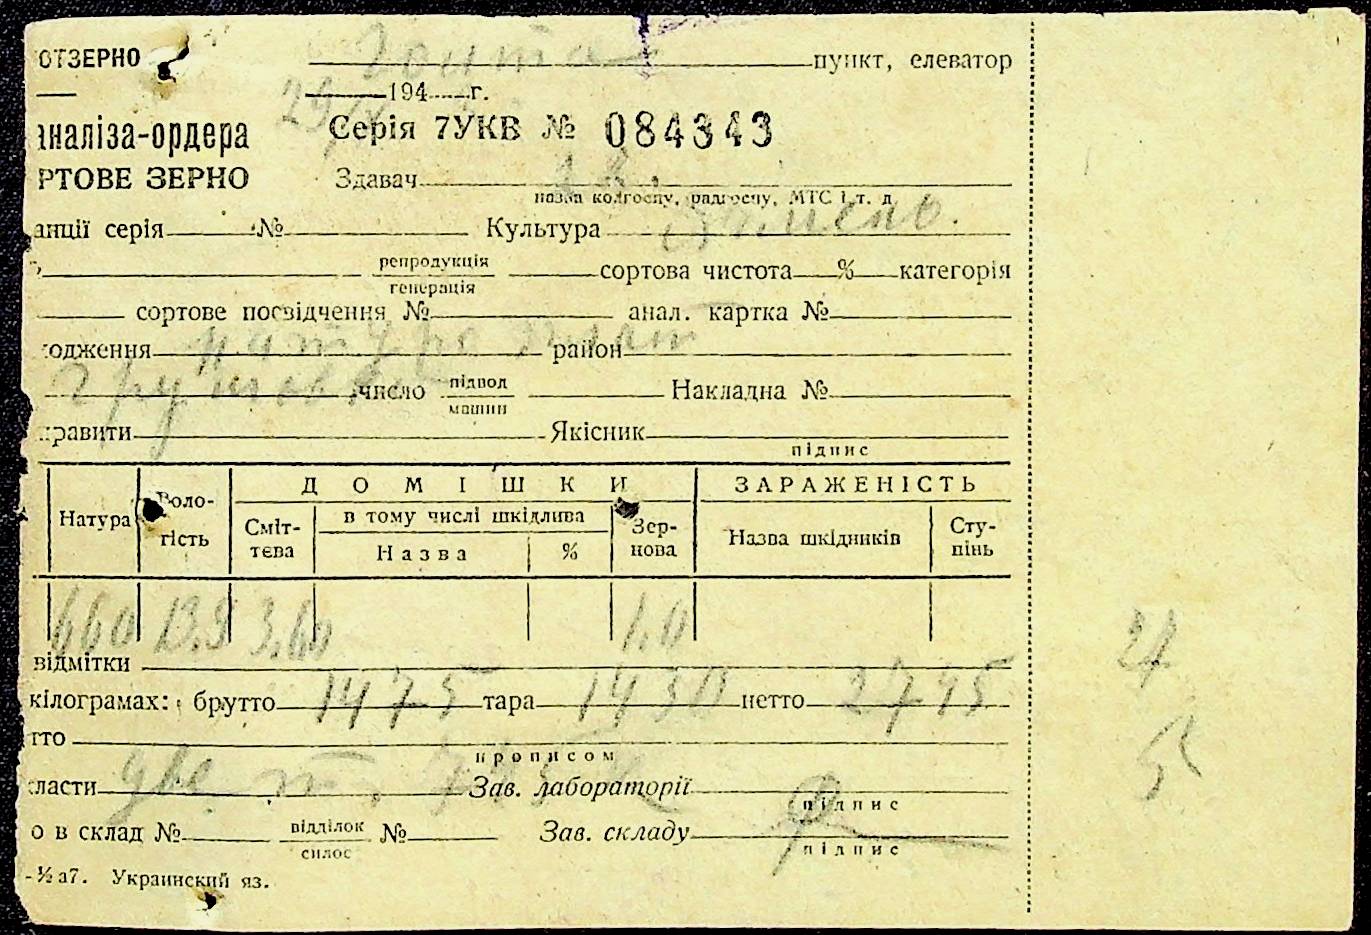 ОТЗЕРНО пункт, елеватор
194 г.
аналіза-ордера Серія 7УКВ № 084343
РТОВЕ ЗЕРНО Здавач
назва колгоспу, радгоспу, МТС і т. д.
анції серія № Культура Ячмень.
репродукція
генерація
сортова чистота % категорія
сортове посвідчення № анал. картка №
одження район
число підвод
машин
Накладна №
равити Якісник
підпис
ДОМІШКИ ЗАРАЖЕНІСТЬ
Натура Воло-
гість
Сміт-
тєва
в тому числі шкідлива
Назва %
Зер-
нова
Назва шкідників
Сту-
пінь
660 13.9 3.60 1.0
відмітки
кілограмах: брутто 1475 тара 1430 нетто 2795
тто
прописом
две
ласти Зав. лабораторії
підпис
о в склад № відділок
силос
№ Зав. складу
підпис
-½ а7. Украинский яз.